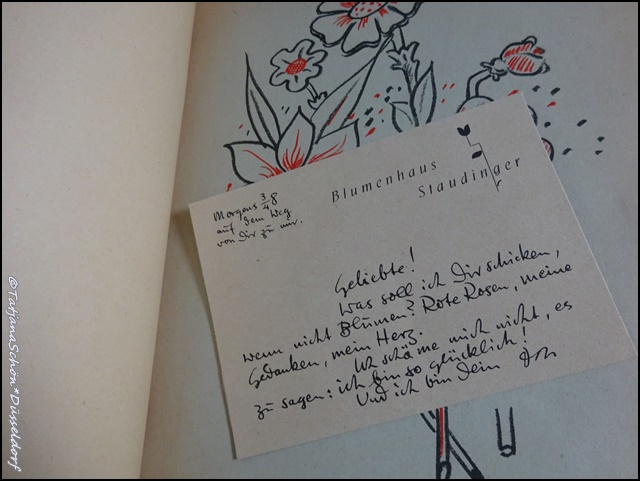 Blumenhaus
Staudinger
Morgens ¾8
auf dem Weg
von Dir zu mir.
Geliebte!
Was soll ich Dir schicken,
wenn nicht Blumen? Rote Rosen, meine
Gedanken, mein Herz.
Ich schäme mich nicht, es
zu sagen: ich bin so glücklich!
Und ich bin Dein
@TatjanaSchön*Düsseldorf